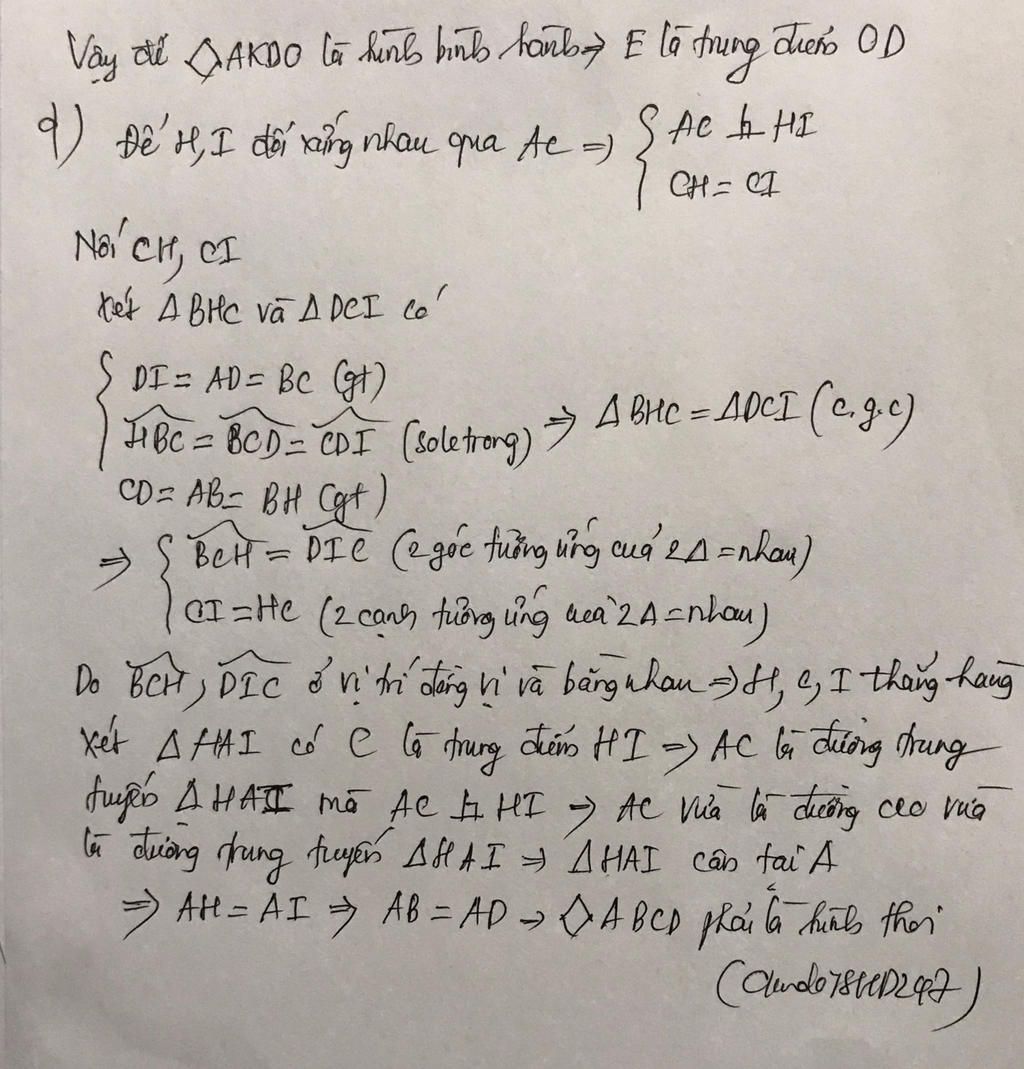 Vậy để ◇AKDO là hình bình hành ⇒ E là trung điểm OD
d) Để H, I đối xứng nhau qua AC ⇒ { AC ⊥ HI
CH = CI
Nối CH, CI
Xét ΔBHC và ΔDCI có
{ DI = AD = BC (gt)
HBC = BCD = CDI (sole trong) ⇒ ΔBHC = ΔDCI (c.g.c)
CD = AB = BH (gt)
⇒ { BCH = DIC (2 góc tương ứng của 2Δ = nhau)
CI = HC (2 cạnh tương ứng của 2Δ = nhau)
Do BCH, DIC ở vị trí đồng vị và bằng nhau ⇒ H, C, I thẳng hàng
Xét ΔHAI có C là trung điểm HI ⇒ AC là đường trung
tuyến ΔHAI mà AC ⊥ HI ⇒ AC vừa là đường cao vừa
là đường trung tuyến ΔHAI ⇒ ΔHAI cân tại A
⇒ AH = AI ⇒ AB = AD → ◇ABCD phải là hình thoi